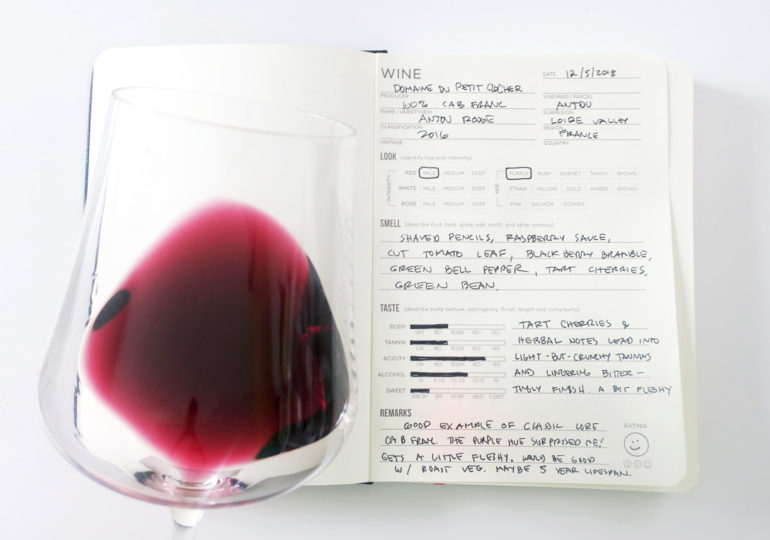 WINE
DATE 12/5/2018
DOMAINE DU PETIT CLOCHER
PRODUCER
VINEYARD / PARCEL
100% CAB FRANC
ANJOU
NAME / VARIETY(IES)
SUBREGION
ANJOU ROUGE
LOIRE VALLEY
CLASSIFICATION
REGION
2016
FRANCE
VINTAGE
COUNTRY
LOOK (identify hue and intensity)
RED PALE MEDIUM DEEP PURPLE RUBY GARNET TAWNY BROWN
INTENSITY WHITE PALE MEDIUM DEEP HUE STRAW YELLOW GOLD AMBER BROWN
ROSÉ PALE MEDIUM DEEP PINK SALMON COPPER
SMELL (describe fruit, herb, spice, oak, earth and other aromas)
SHAVED PENCILS, RASPBERRY SAUCE,
CUT TOMATO LEAF, BLACKBERRY BRAMBLE,
GREEN BELL PEPPER, TART CHERRIES,
GREEN BEAN.
TASTE (describe taste texture, astringency, finish, length and complexity)
BODY
TANNIN
ACIDITY
ALCOHOL
SWEET
TART CHERRIES &
HERBAL NOTES LEAD INTO
LIGHT-BUT-CRUNCHY TANNINS
AND LINGERING BITTER-
TINGLY FINISH. A BIT FLESHY
REMARKS
GOOD EXAMPLE OF CLASSIC LOIRE
CAB FRAN. THE PURPLE HUE SURPRISED ME!
GETS A LITTLE FLESHY. WOULD BE GOOD
W/ ROAST VEG. MAYBE 5 YEAR LIFESPAN.
RATING